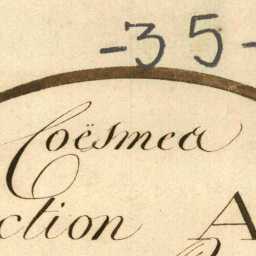 -35-
Coësmea
ction A